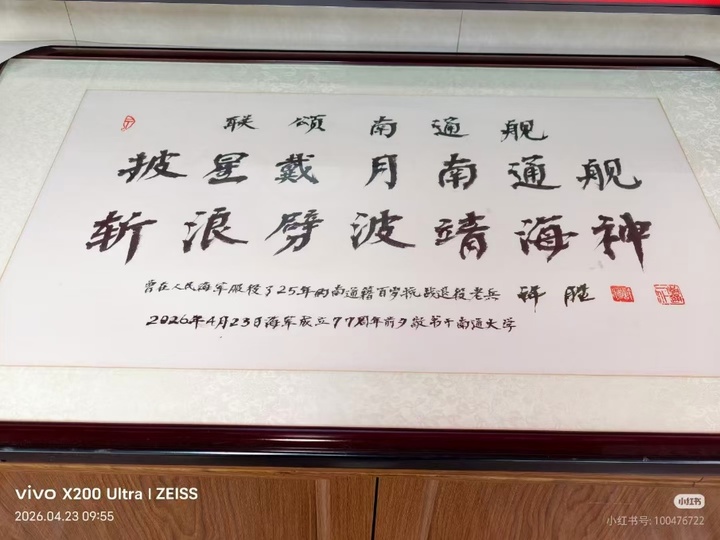 联颂南通舰
披星戴月南通舰
斩浪劈波靖海神
曾在人民海军服役了25年的南通籍百岁抗战退役老兵
2026年4月23日海军成立77周年前夕敬书于南通大学
vivo X200 Ultra | ZEISS
2026.04.23 09:55
小红书
小红书号: 100476722